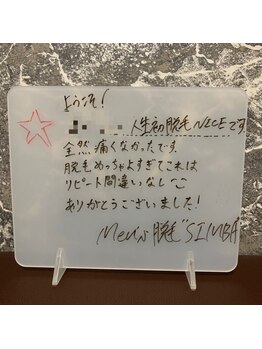 ようこそ!
人生初脱毛NICEです
全然痛くなかったです
脱毛めっちゃよすぎてこれは
リピート間違いなし
ありがとうございました!
Men's脱毛"SIMBA